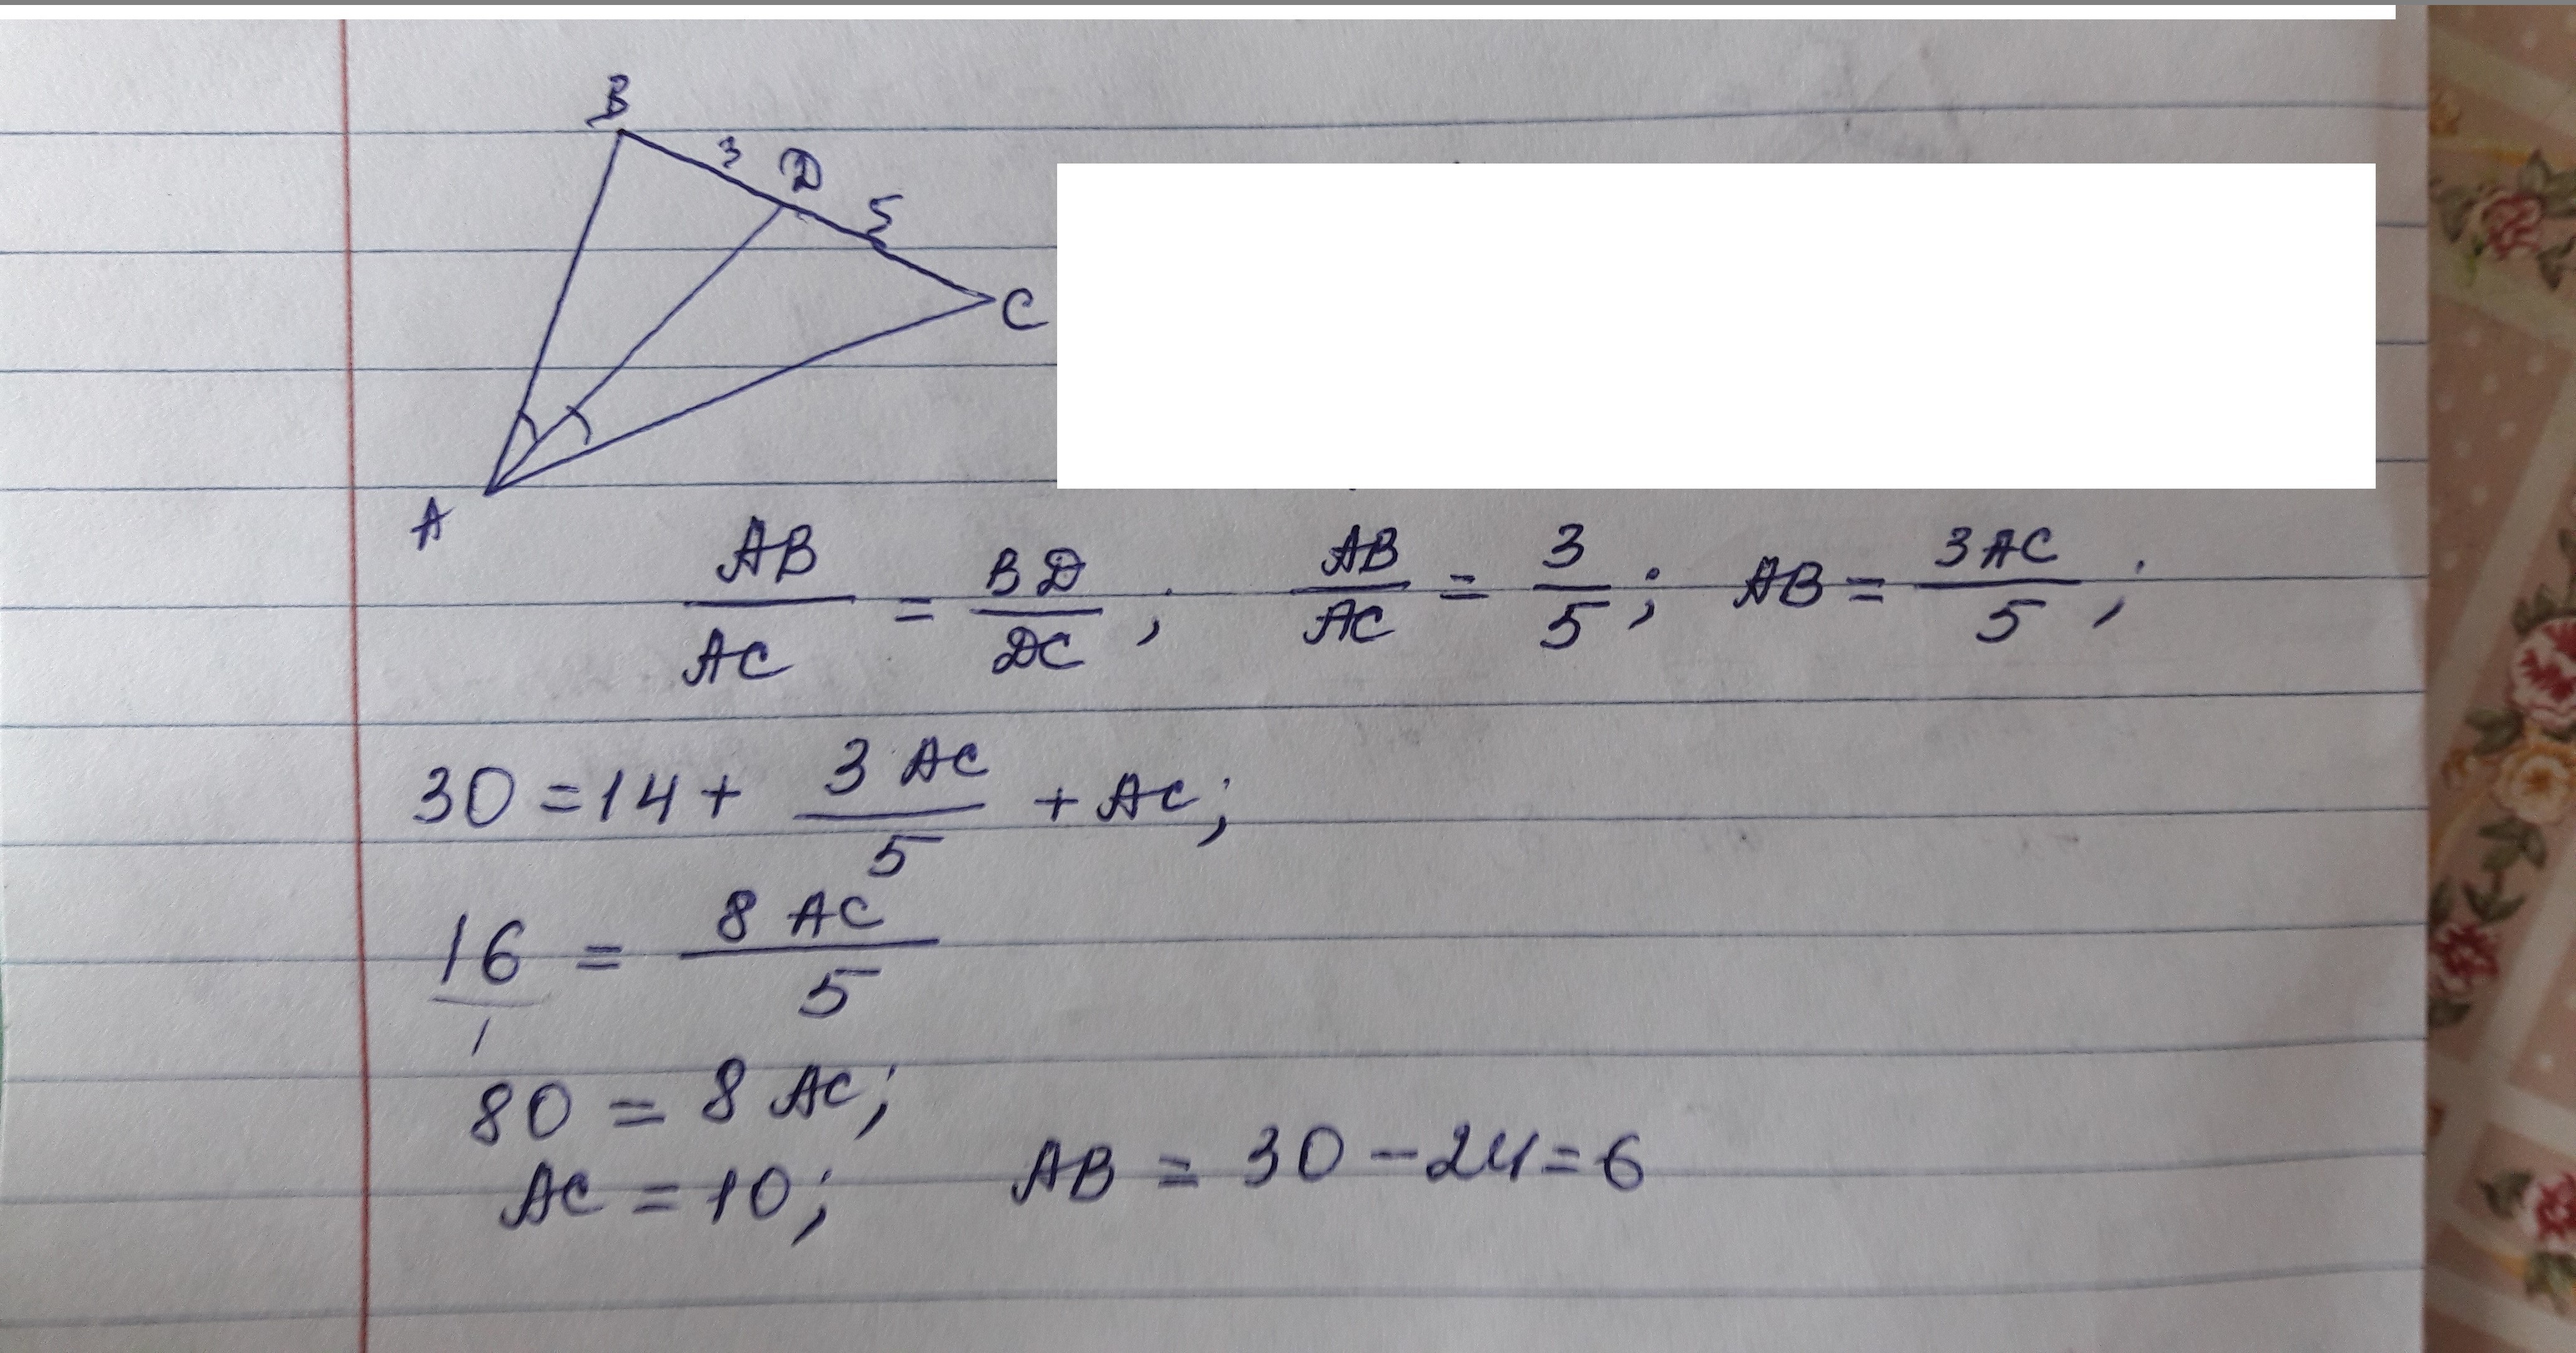 B
3 D
5
C
A
AB/AC = BD/DC ; AB/AC = 3/5 ; AB = 3AC/5 ;
30 = 14 + 3AC/5 + AC;
16/1 = 8AC/5
80 = 8AC;
AC = 10; AB = 30 - 24 = 6